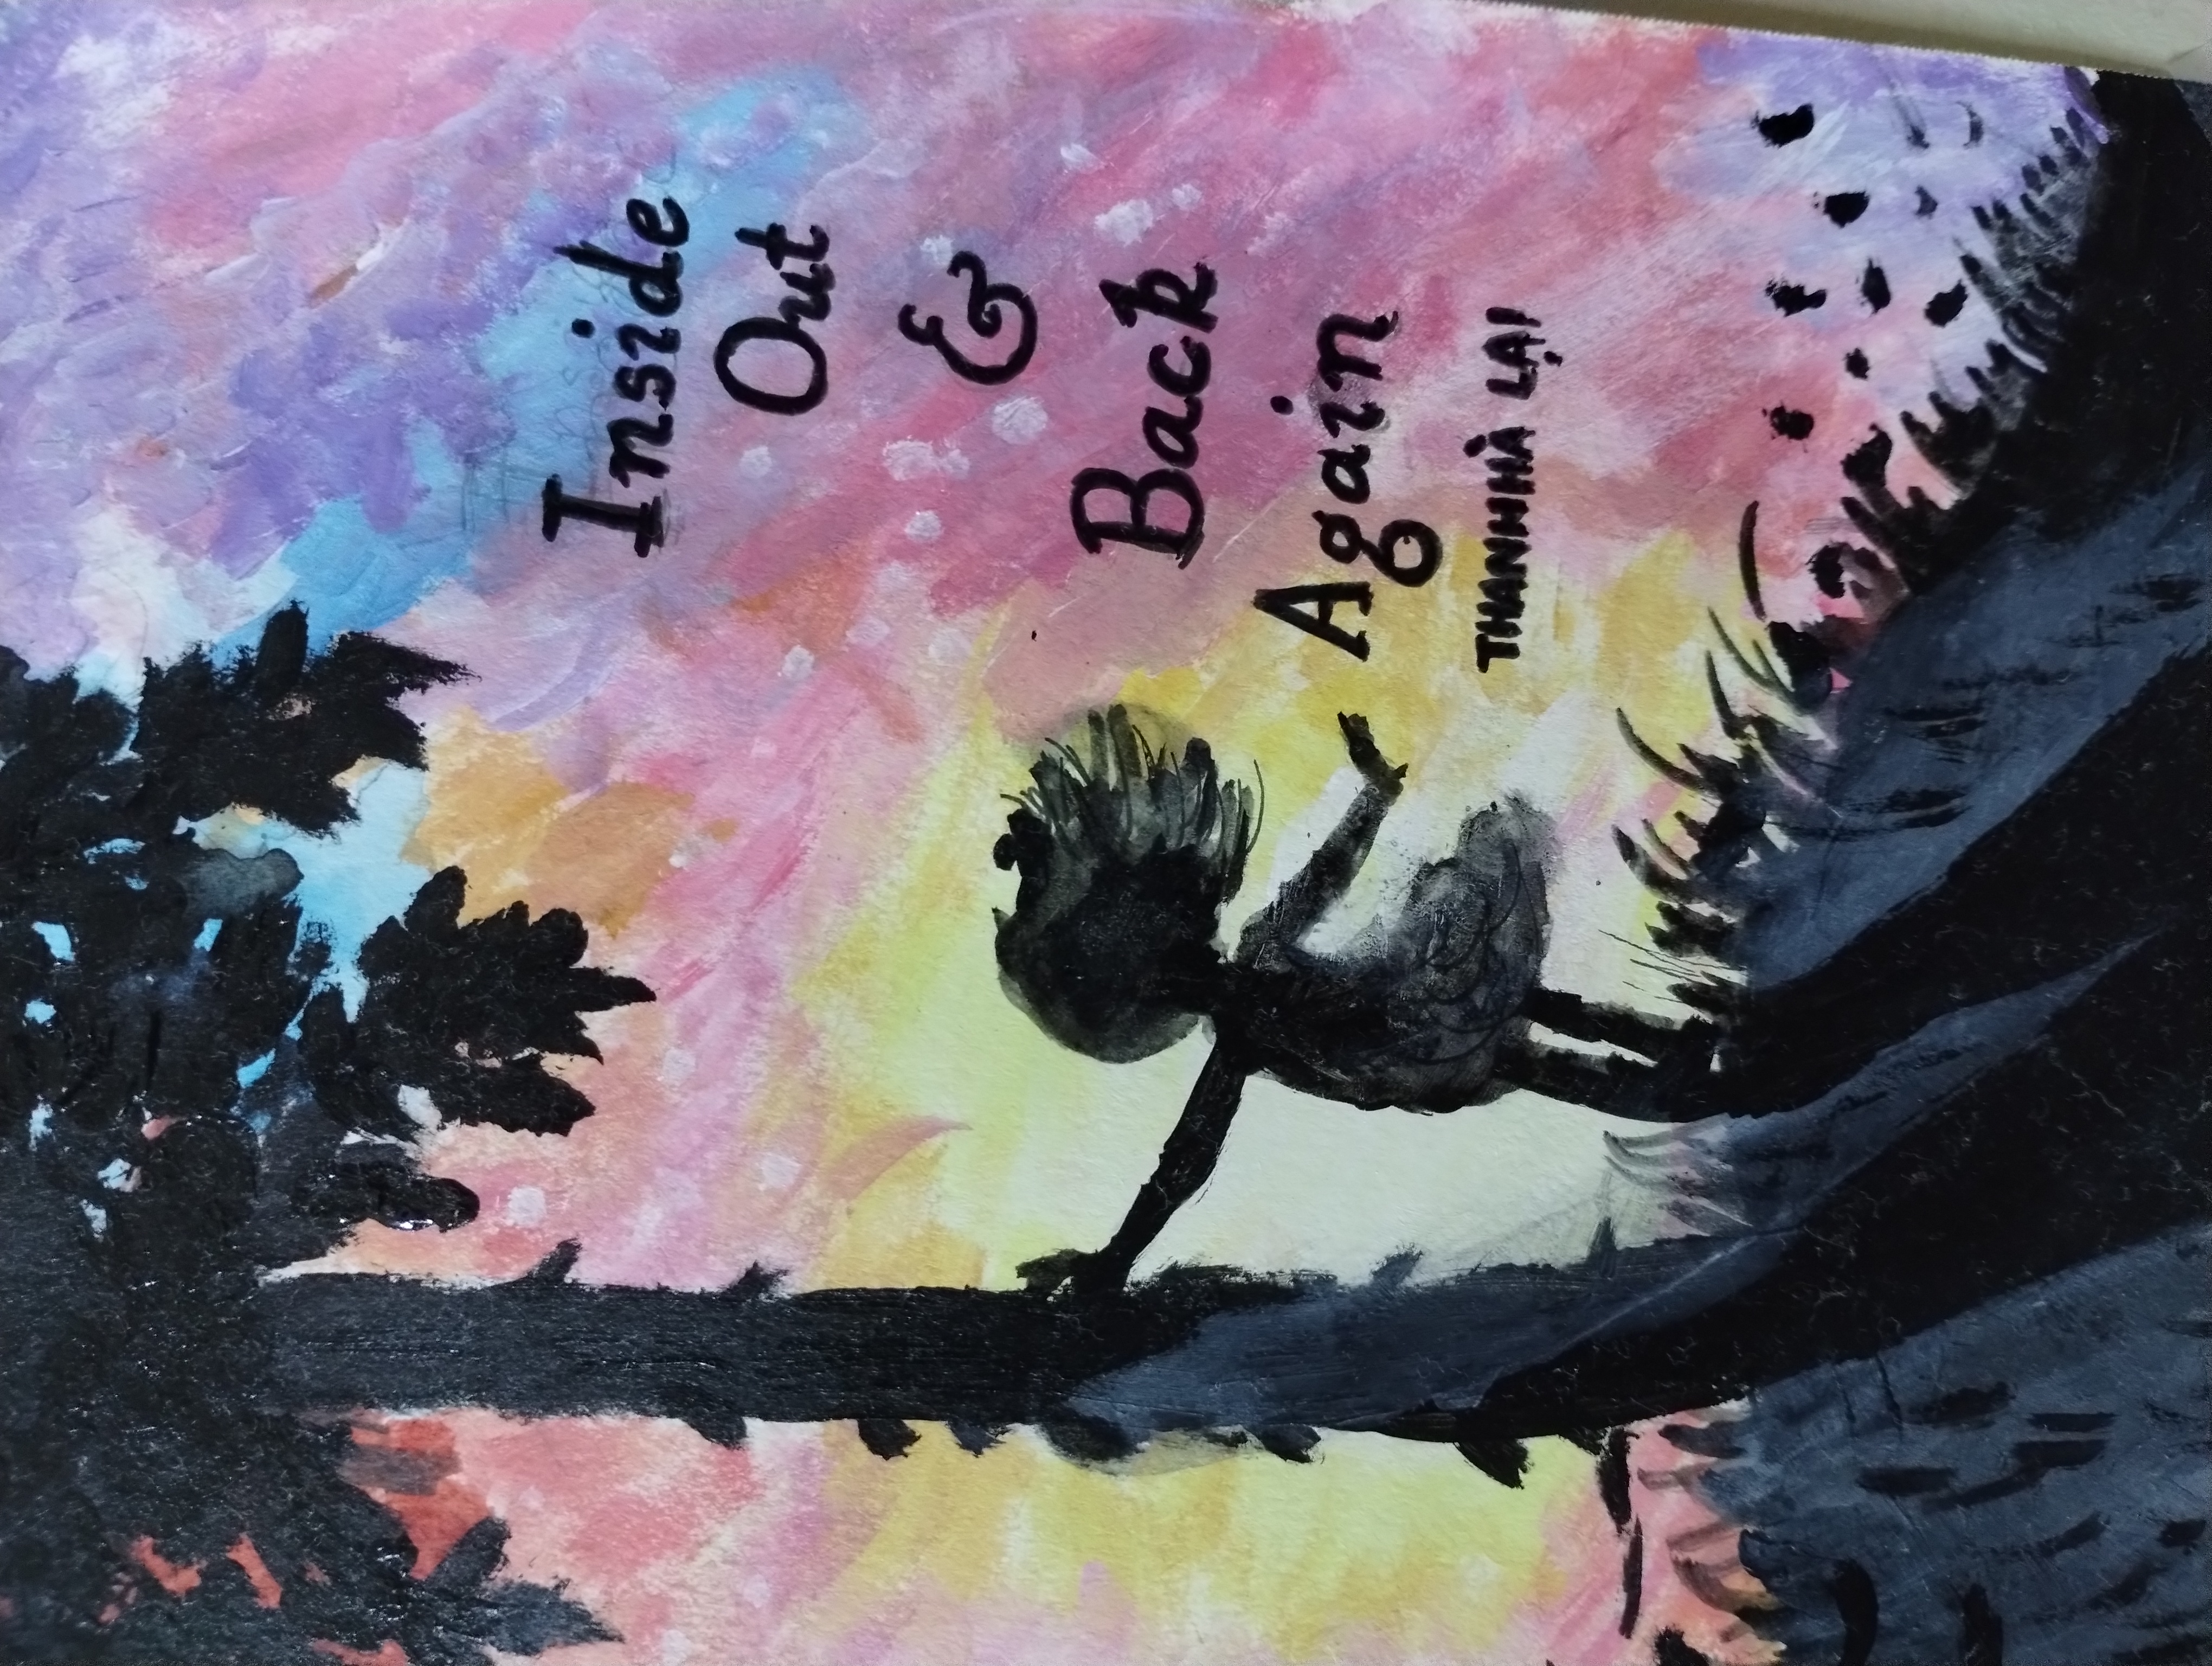 Inside
Out
&
Back
Again
THANHHÀ LẠI